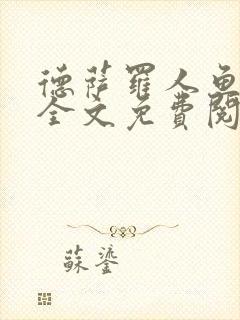 德萨羅人鱼
全文免費閱
蘇鎏